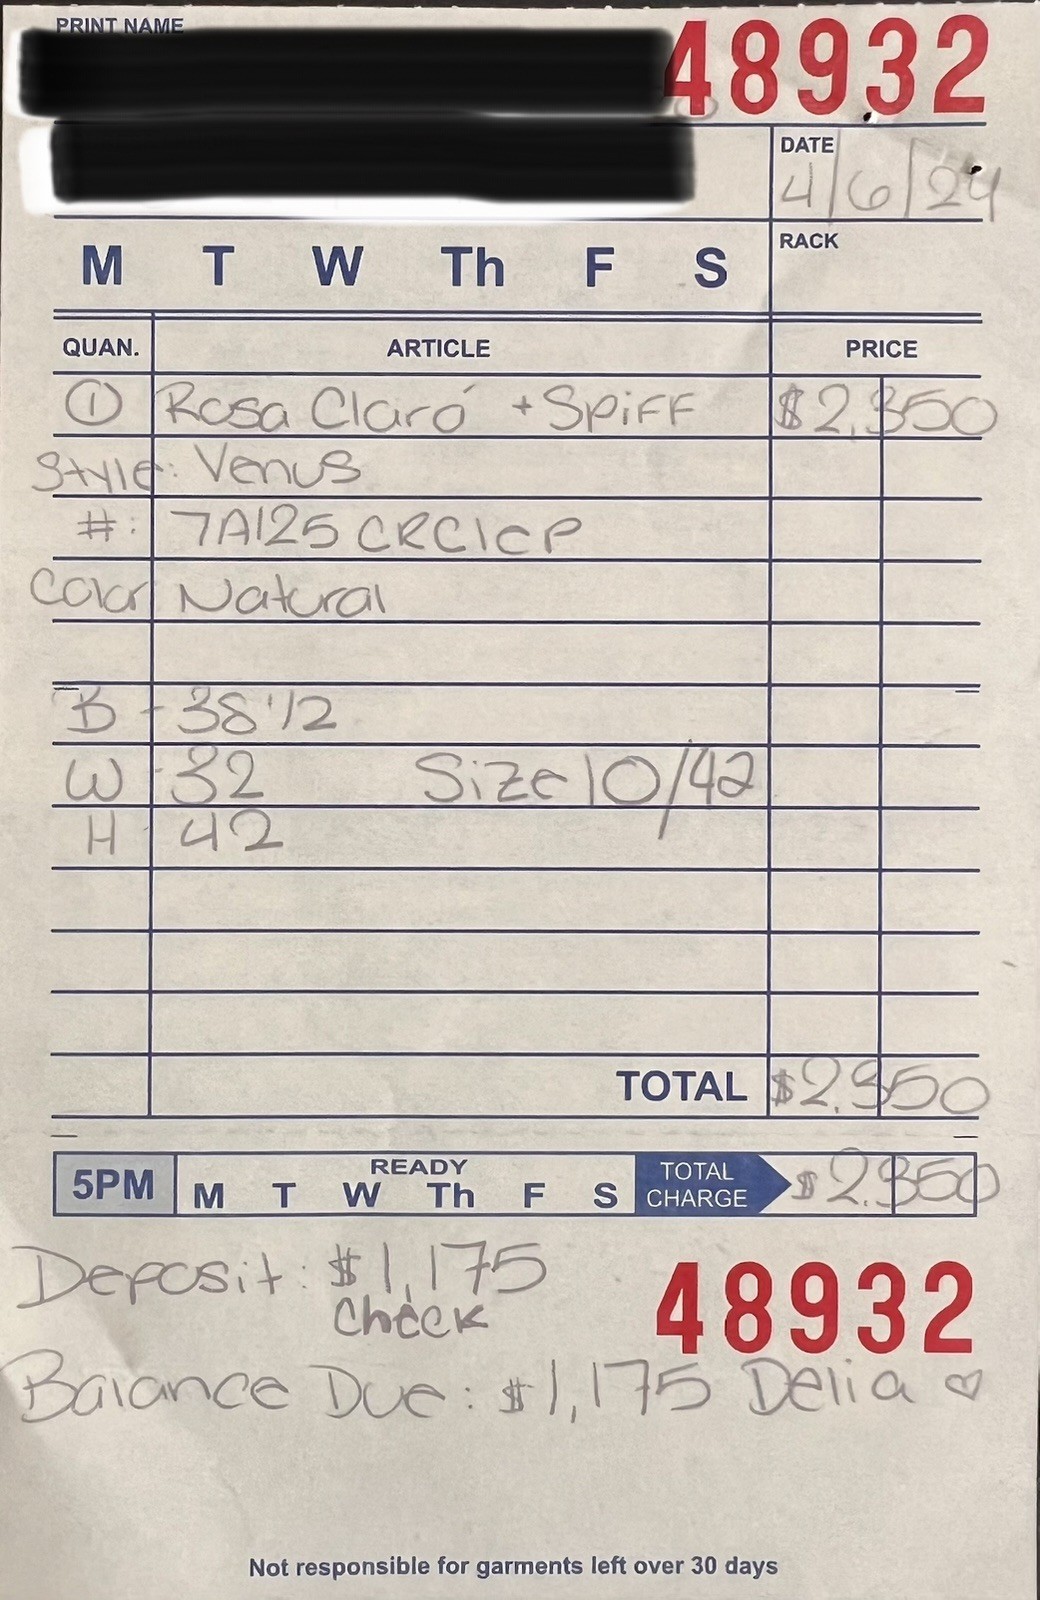 PRINT NAME
48932
DATE
4/6/24
M T W Th F S
RACK
QUAN. ARTICLE PRICE
① Rosa Claró + Spiff $2,350
Style: Venus
#: 7A125 CRC1CP
Color Natural
B - 38 1/2
W - 32 Size 10/42
H - 42
TOTAL $2,350
5PM READY M T W Th F S TOTAL CHARGE $2,350
Deposit: $1,175
Check
48932
Balance Due: $1,175 Delia ♡
Not responsible for garments left over 30 days